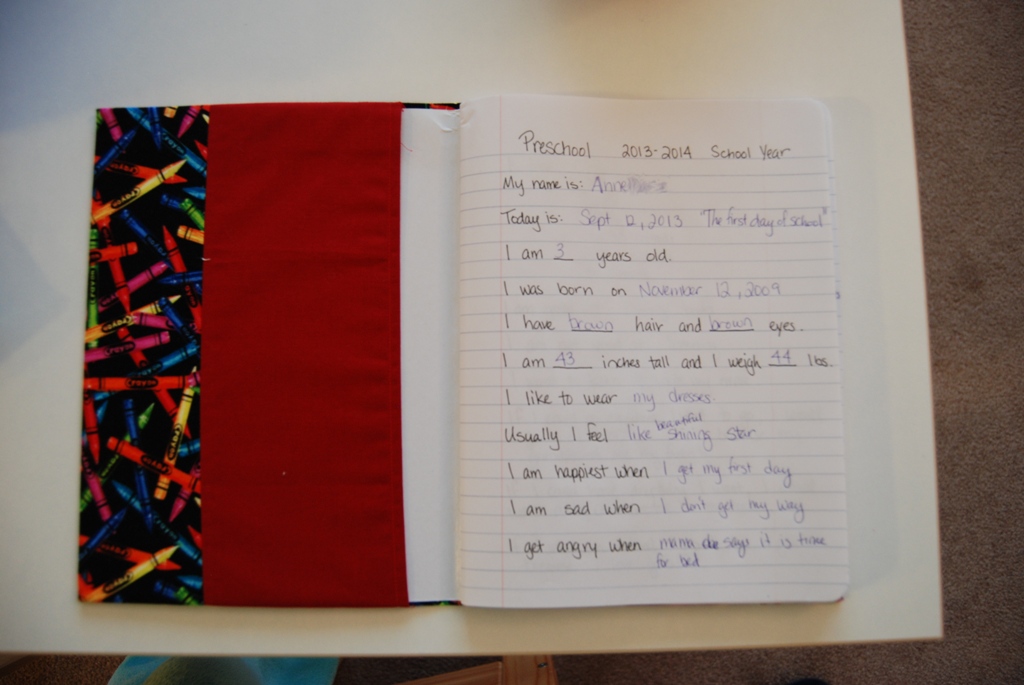 Preschool 2013-2014 School Year
My name is: Anne
Today is: Sept 12, 2013 "The first day of school"
I am 3 years old.
I was born on November 12, 2009
I have brown hair and brown eyes.
I am 43 inches tall and I weigh 44 lbs.
I like to wear my dresses.
Usually I feel like beautiful shining star
I am happiest when I get my first day
I am sad when I don't get my way
I get angry when mama says it is time
for bed